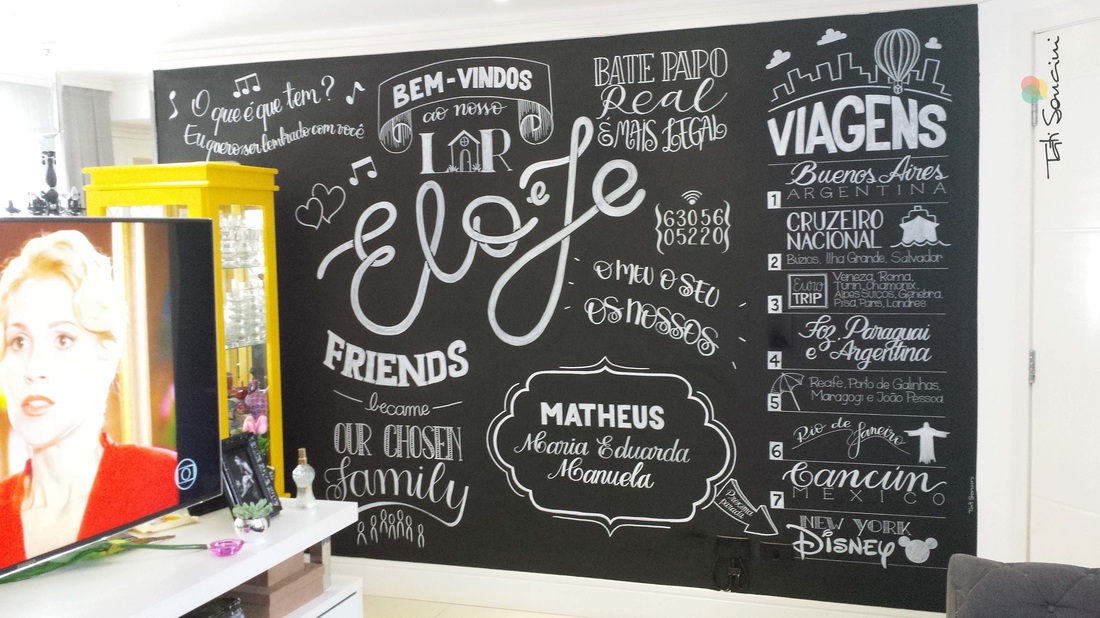 O que é que tem?
Eu quero ser lembrado com você
BEM-VINDOS
ao nosso
LAR
BATE PAPO
Real
É MAIS LEGAL
Elo e Je
63056
05220
O MEU O SEU
OS NOSSOS
FRIENDS
became
OUR CHOSEN
family
MATHEUS
Maria Eduarda
Manuela
VIAGENS
Buenos Aires
ARGENTINA
1
CRUZEIRO
NACIONAL
2 Búzios, Ilha Grande, Salvador
Euro
TRIP
3
Veneza, Roma,
Turin, Chamonix,
Alpes Suiços, Genebra,
Pisa, Paris, Londres
Foz, Paraguai
e Argentina
4
5
Recife, Porto de Galinhas,
Maragogi e João Pessoa
Rio de Janeiro
6
Cancún
7 MEXICO
Próxima
parada
NEW YORK
DISNEY
Tati Soncini